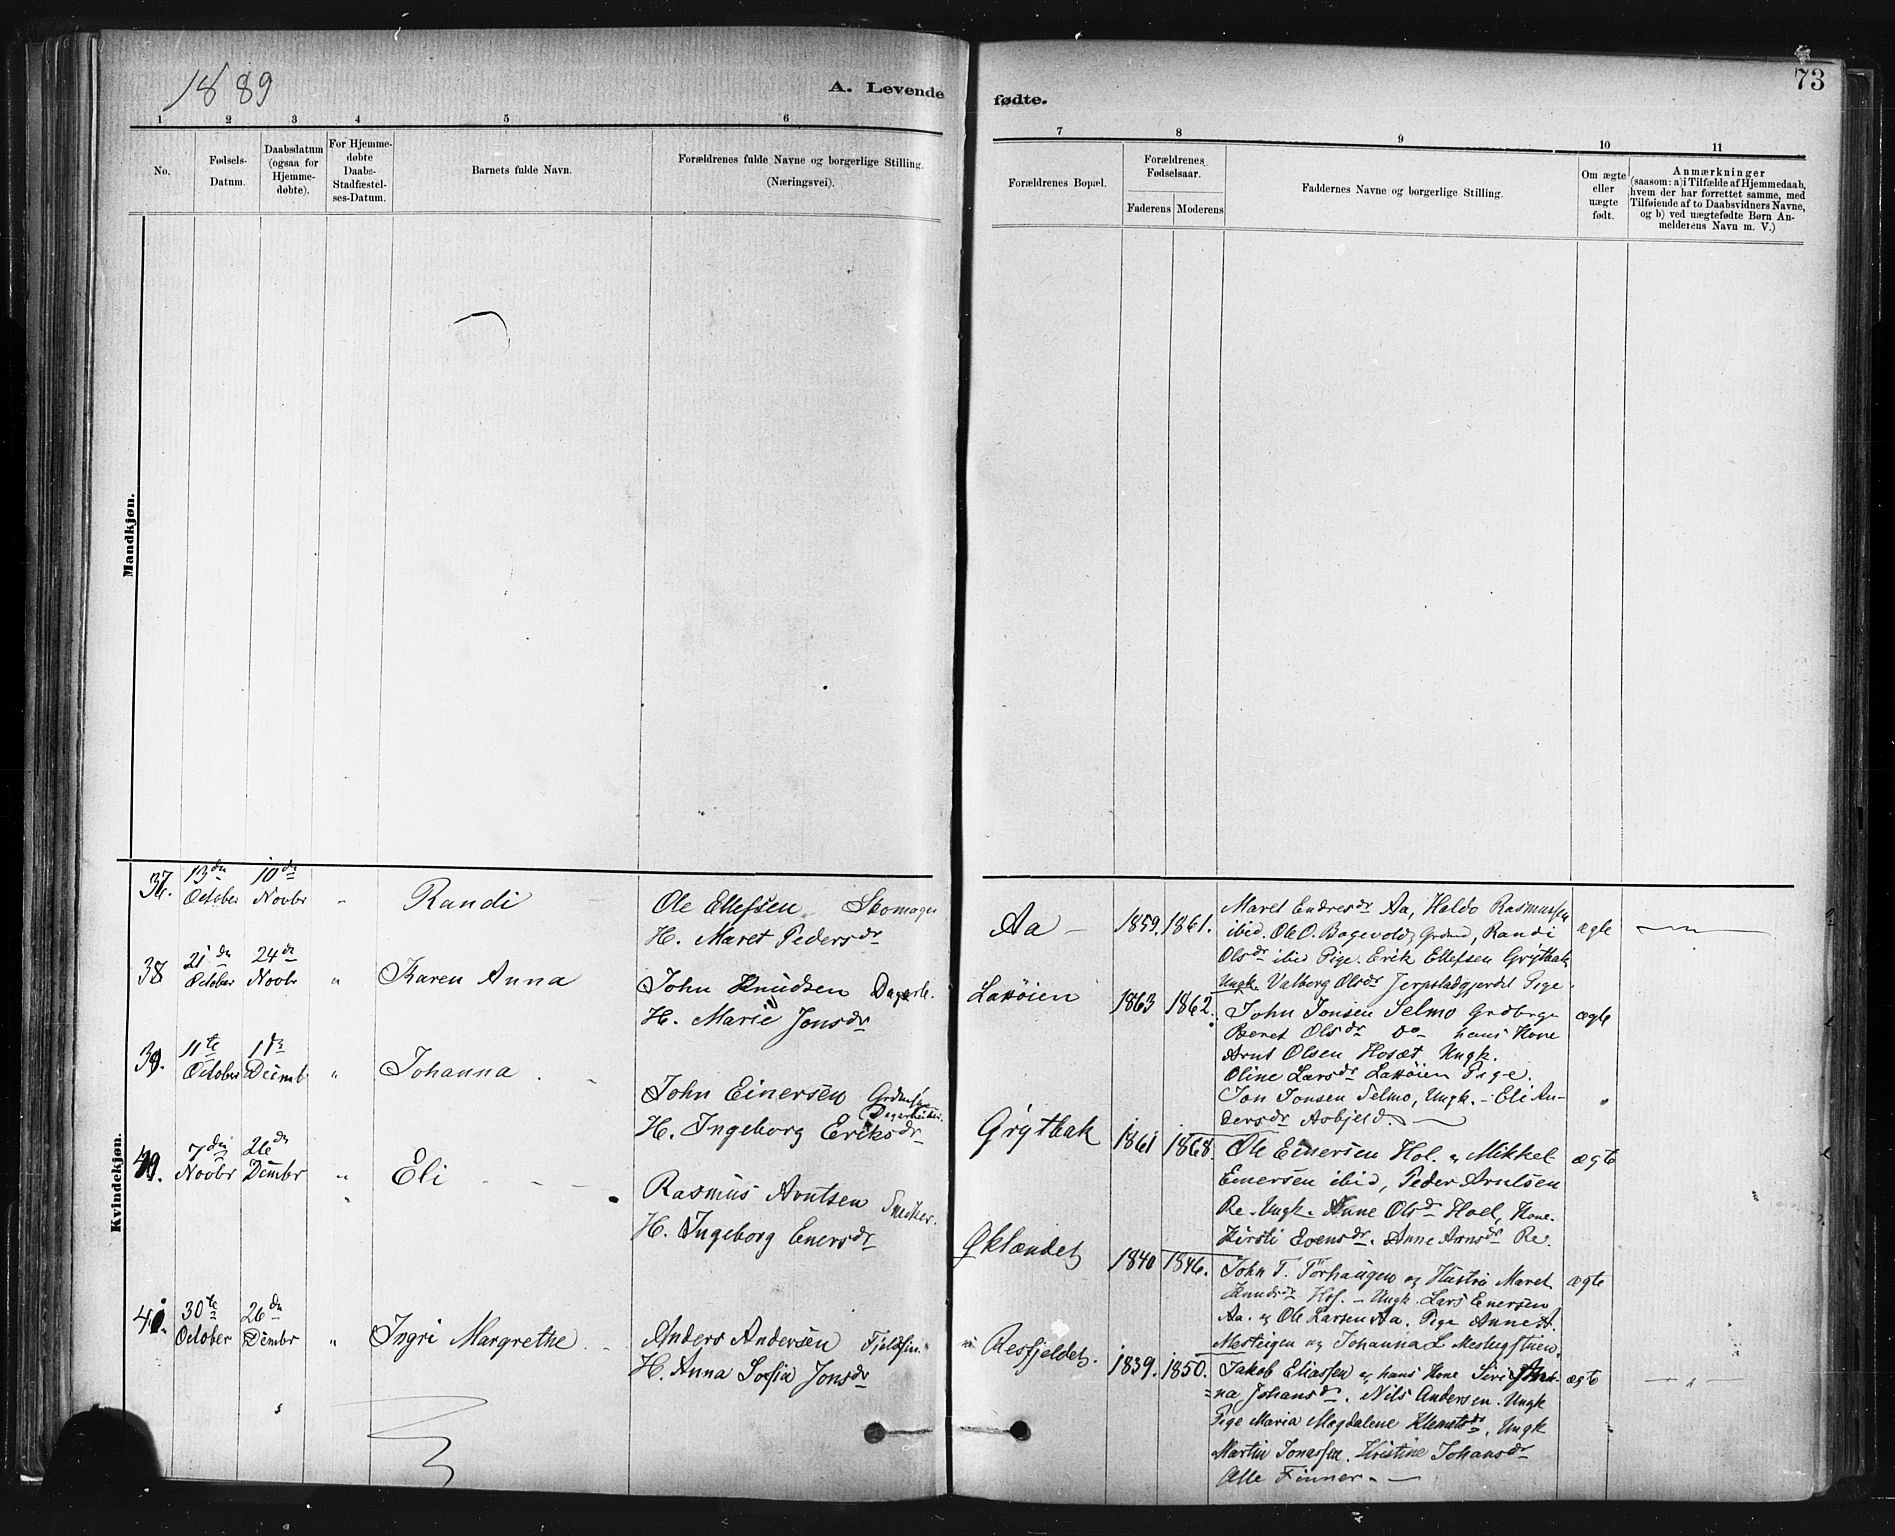 1889
A. Levende
fødte.
73
1 2 3 4 5 6 7 8 9 10 11
No.
Fødsels-
Datum.
Daabsdatum
(ogsaa for
Hjemme-
døbte).
For Hjemme-
døbte
Daabs-
Stadfæstel-
ses-Datum.
Barnets fulde Navn.
Forældrenes fulde Navne og borgerlige Stilling.
(Næringsvei).
Forældrenes Bopæl.
Forældrenes
Fødselsaar.
Faderens Moderens
Faddernes Navne og borgerlige Stilling.
Om ægte
eller
uægte
født.
Anmærkninger
(saasom: a) i Tilfælde af Hjemmedaab,
hvem der har forrettet samme, med
Tilføiende af to Daabsvidners Navne,
og b) ved uægtefødte Børn An-
melderens Navn m. V.)
Mandkjøn.
Kvindekjøn.
37.
13de
October
10de
Novbr
Randi
Ole Ellefsen Skomager
H. Maret Pedersdr
Aa
1859. 1861.
Maret Endresdr Aa, Haldo Rasmussen
ibid. Ole O. Bagevold, Grdmd, Randi
Olsdr ibid Pige. Erik Ellefsen Grytbak
Ungk. Valborg Olsdr Jerpstadgjerdet Pige.
ægte
38
21de
October
24de
Novbr
"
Karen Anna
John Knudsen Dagarb.
H. Marie Jonsdr
Lassøien
1863 1862.
John Jonsen Selmo Grdbrgr
Beret Olsdr Do hans Kone
Arnt Olsen Hosæt, Ungk.
Oline Larsdr Lassøien Pige.
Jon Jonsen Selmo, Ungk. - Eli An-
dersdr Aobjeld.
ægte
39.
11te
October
1ste
Decmb
"
Johanna
John Einersen
Dagarbeider.
H. Ingeborg Eriksdr
Grytbak
1861 1868.
Ole Einersen Hol. og Mikkel
Einersen ibid, Peder Arntsen
Re. Ungk. Anne Olsdr Hoel, Kone.
Kirsti Evensdr. Anne Arnsdr Re.
ægte
40.
7de
Novbr
26de
Dembr
"
Eli
Rasmus Arntsen Snedker.
H. Ingeborg Enersdr
Øklandet
1840 1846.
John T. Torhaugen og Hustru Maret
Knudsdr Hof. - Ungk. Lars Enersen
Aa. og Ole Larsen Aa. Pige Anne A.
Mesteigen og Johanna L
ægte
41.
30te
October
26de
Dembr
"
Ingri Margrethe
Anders Andersen Fjeldfin.
H. Anna Sofia Jonsdr
Resfjeldet.
1839. 1850.
Jakob Eliassen og hans Kone Siri An-
na Johansdr. Nils Andersen. Ungk
Pige Maria Magdalene Klemetsdr, Ungk
Martin Jonassen. Kristine Johansdr
Alle Finner.
ægte